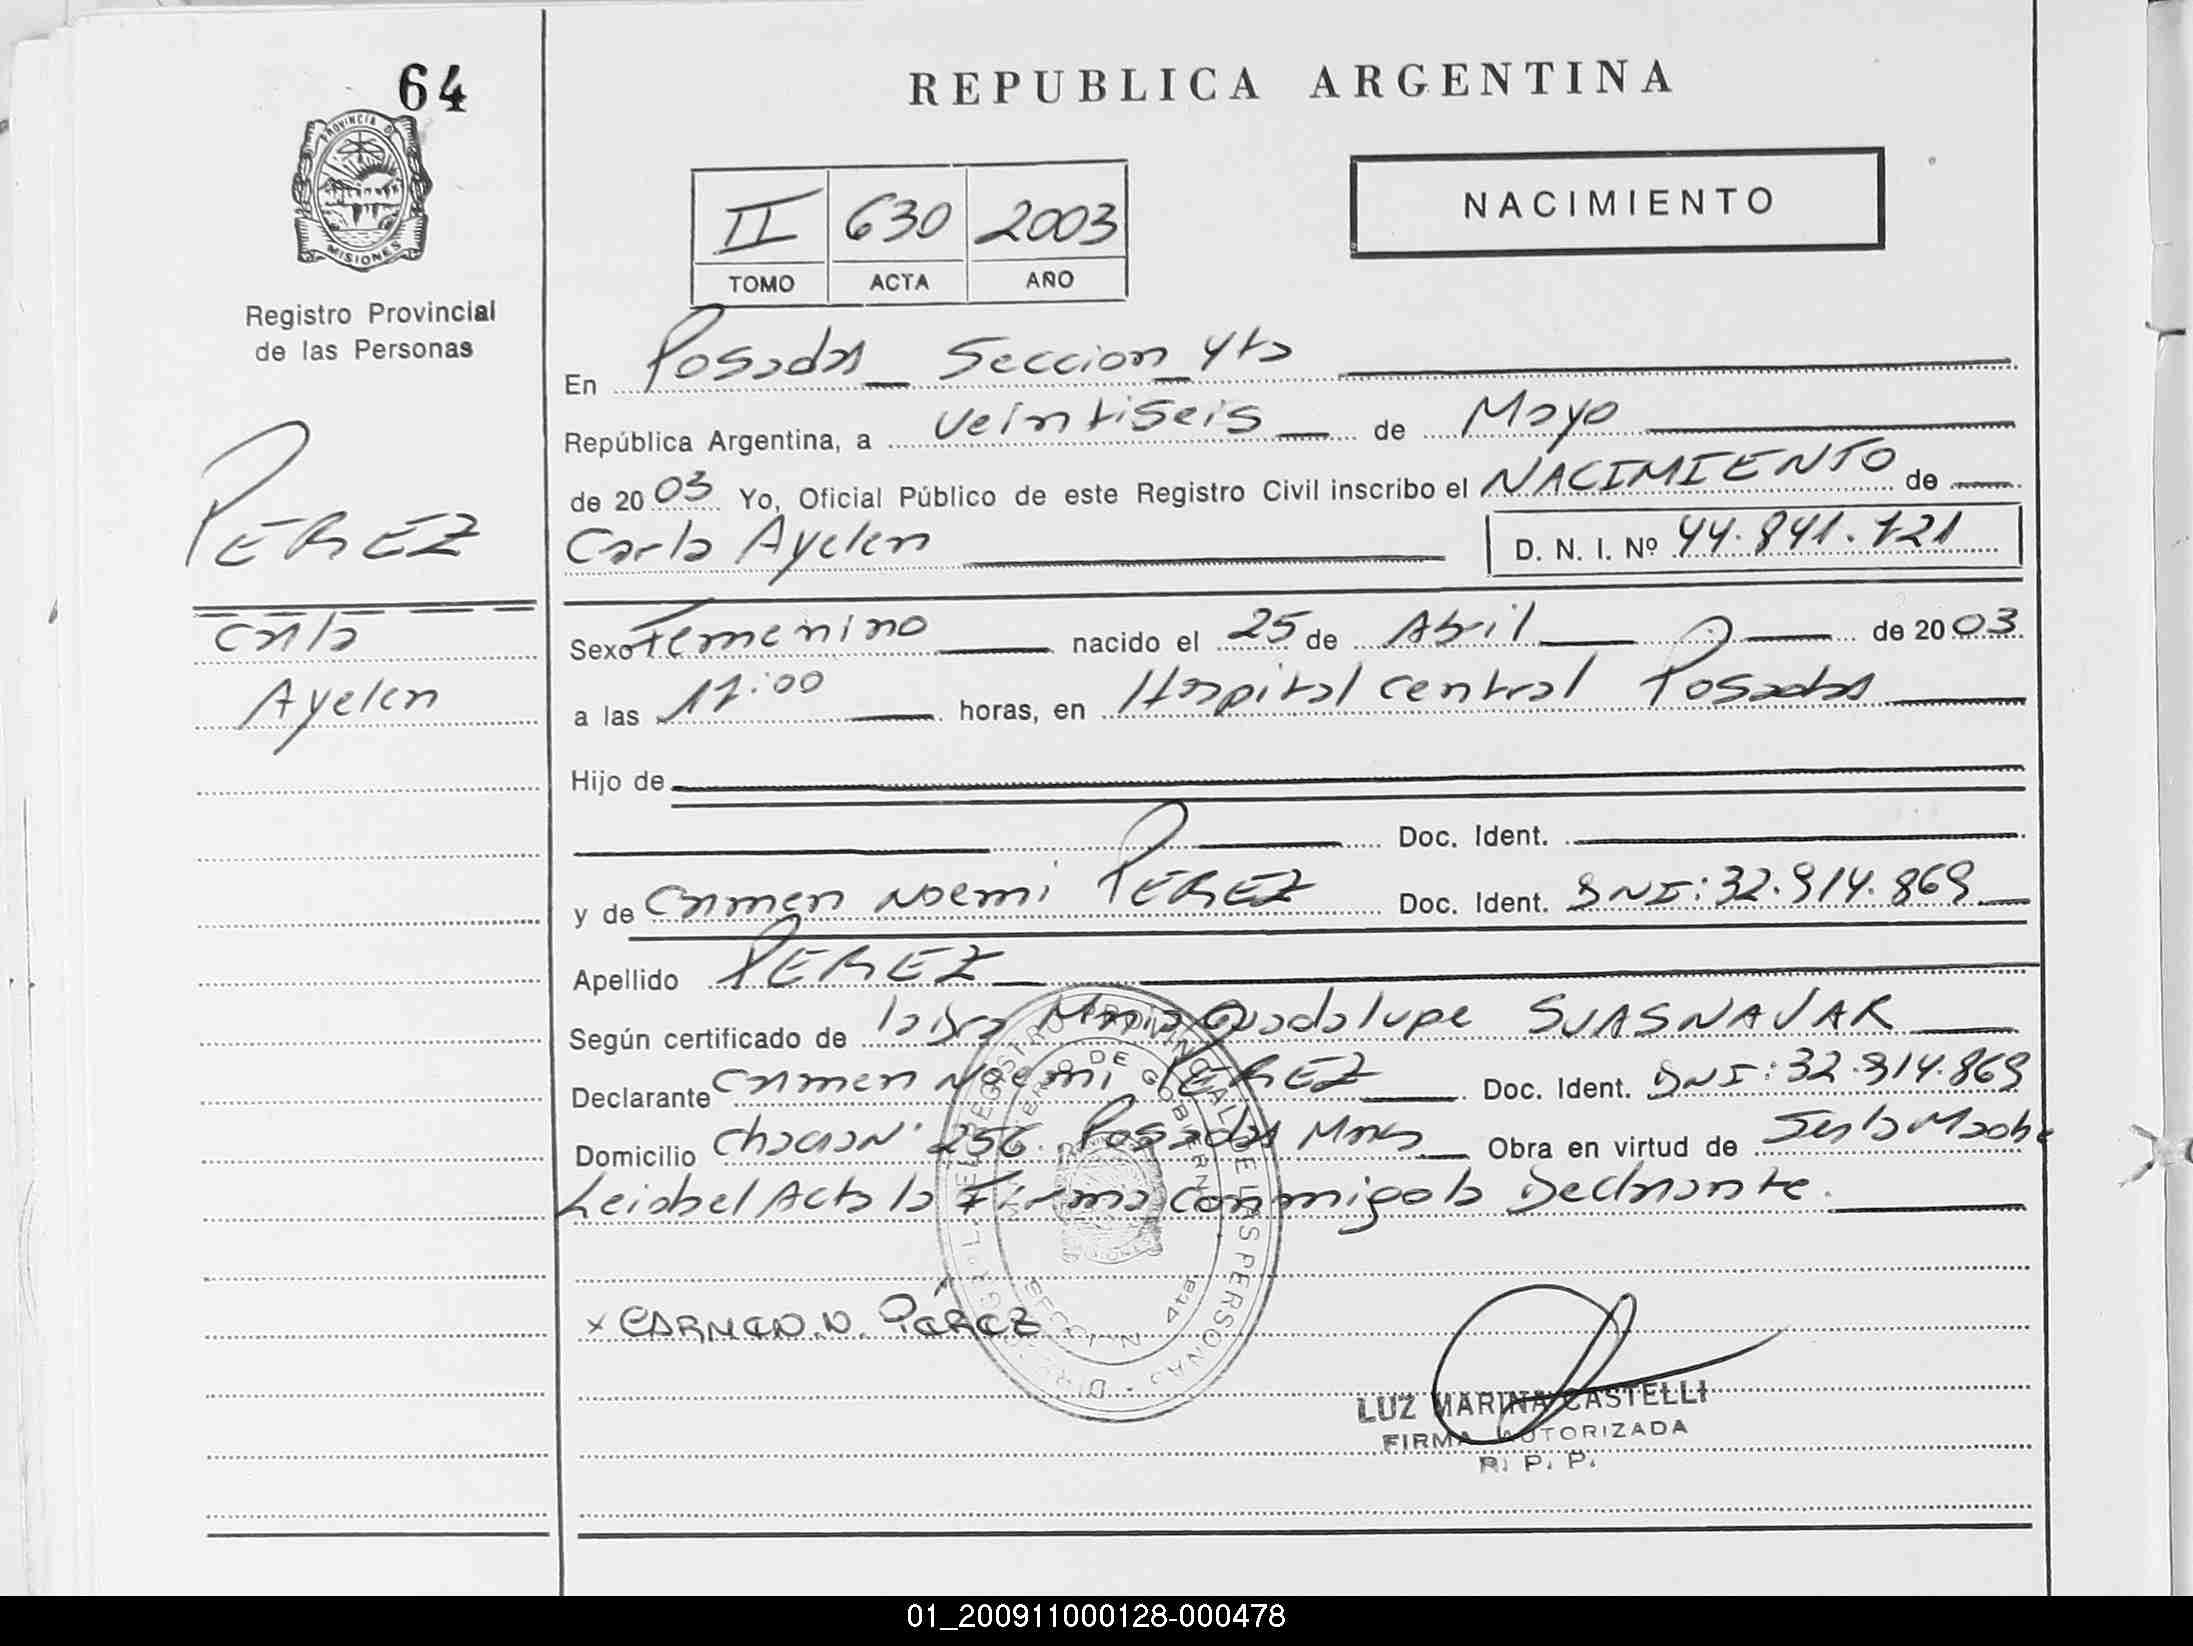 64
PROVINCIA D
MISIONES
Registro Provincial
de las Personas
PEREZ
Carla
Ayelen
REPUBLICA ARGENTINA
NACIMIENTO
II 630 2003
TOMO ACTA AÑO
En Posadas Seccion 4ta
República Argentina, a veintiseis de Mayo
de 2003 Yo, Oficial Público de este Registro Civil inscribo el NACIMIENTO de
Carla Ayelen D. N. I. Nº 44.841.121
Sexo Femenino nacido el 25 de Abril de 2003
a las 17:00 horas, en Hospital Central Posadas
Hijo de
Doc. Ident.
y de Carmen Noemi PEREZ Doc. Ident. DNI: 32.914.869
Apellido PEREZ
Según certificado de Maria Guadalupe SUASNAVAR
Declarante Carmen Noemi PEREZ Doc. Ident. DNI: 32.914.869
Domicilio 256 Posadas Mnes Obra en virtud de Ser la Madre
Leida el Acta la Firma conmigo la Declarante.
SECCION 4ta
x CARMEN.N. PÉREZ
LUZ MARINA CASTELLI
FIRMA AUTORIZADA
R. P. P.
01_200911000128-000478